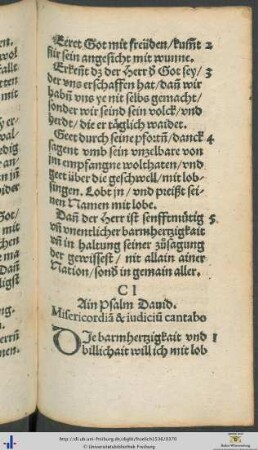 Eeret Got mit freüden/kumt 2
für sein angesicht mit wunne.
Erkent dz der Herr ď Got sey/ 3
der vns erschaffen hat/dañ wir
habñ vns ye nit selbs gemacht/
sonder wir seind sein volck/vnd
herdt/die er täglich waidet.
Geet durch seine pfortñ/danck 4
sagent vmb sein vnzelbare von
jm empfangne wolthaten/vnd
geet über die geschwell/mit lob-
singen. Lobt jn/vnd preißt sei-
nen Namen mit lobe.
Dañ der Herr ist senfftmütig 5
vñ vnentlicher barmhertzigkait
vñ in haltung seiner zůsagung
der gewissest/nit allain ainer
Nation/sond in gemain aller.
C I
Ain Psalm Dauid.
Misericordiã & iudiciũ cantabo
DJe barmhertzigkait vnd 1
billichait will ich mit lob
http://dl.ub.uni-freiburg.de/diglit/froelich1536/0370
© Universitätsbibliothek Freiburg
Baden-Württemberg